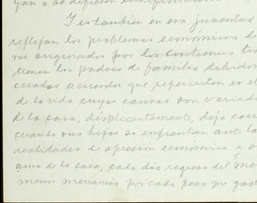 y es también en esa
reflejan los problemas económicos de
nes originados por los continuos
tienen los padres de familias debidos
acuerdos que repercuten en el
de la vida cuyas causas son variadas
de la casa, displicentemente, deja
cuando sus hijos se enfrentan ante la
realidades de opresión económica y
ama de la casa, cada día regresa del mer
menos mercancía por cada peso que gast